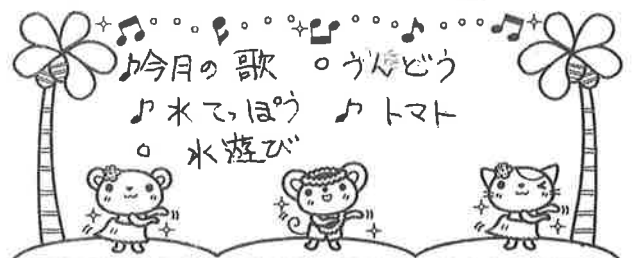 ♪今月の歌 ○うんどう
♪水てっぽう ♪トマト
○ 水遊び